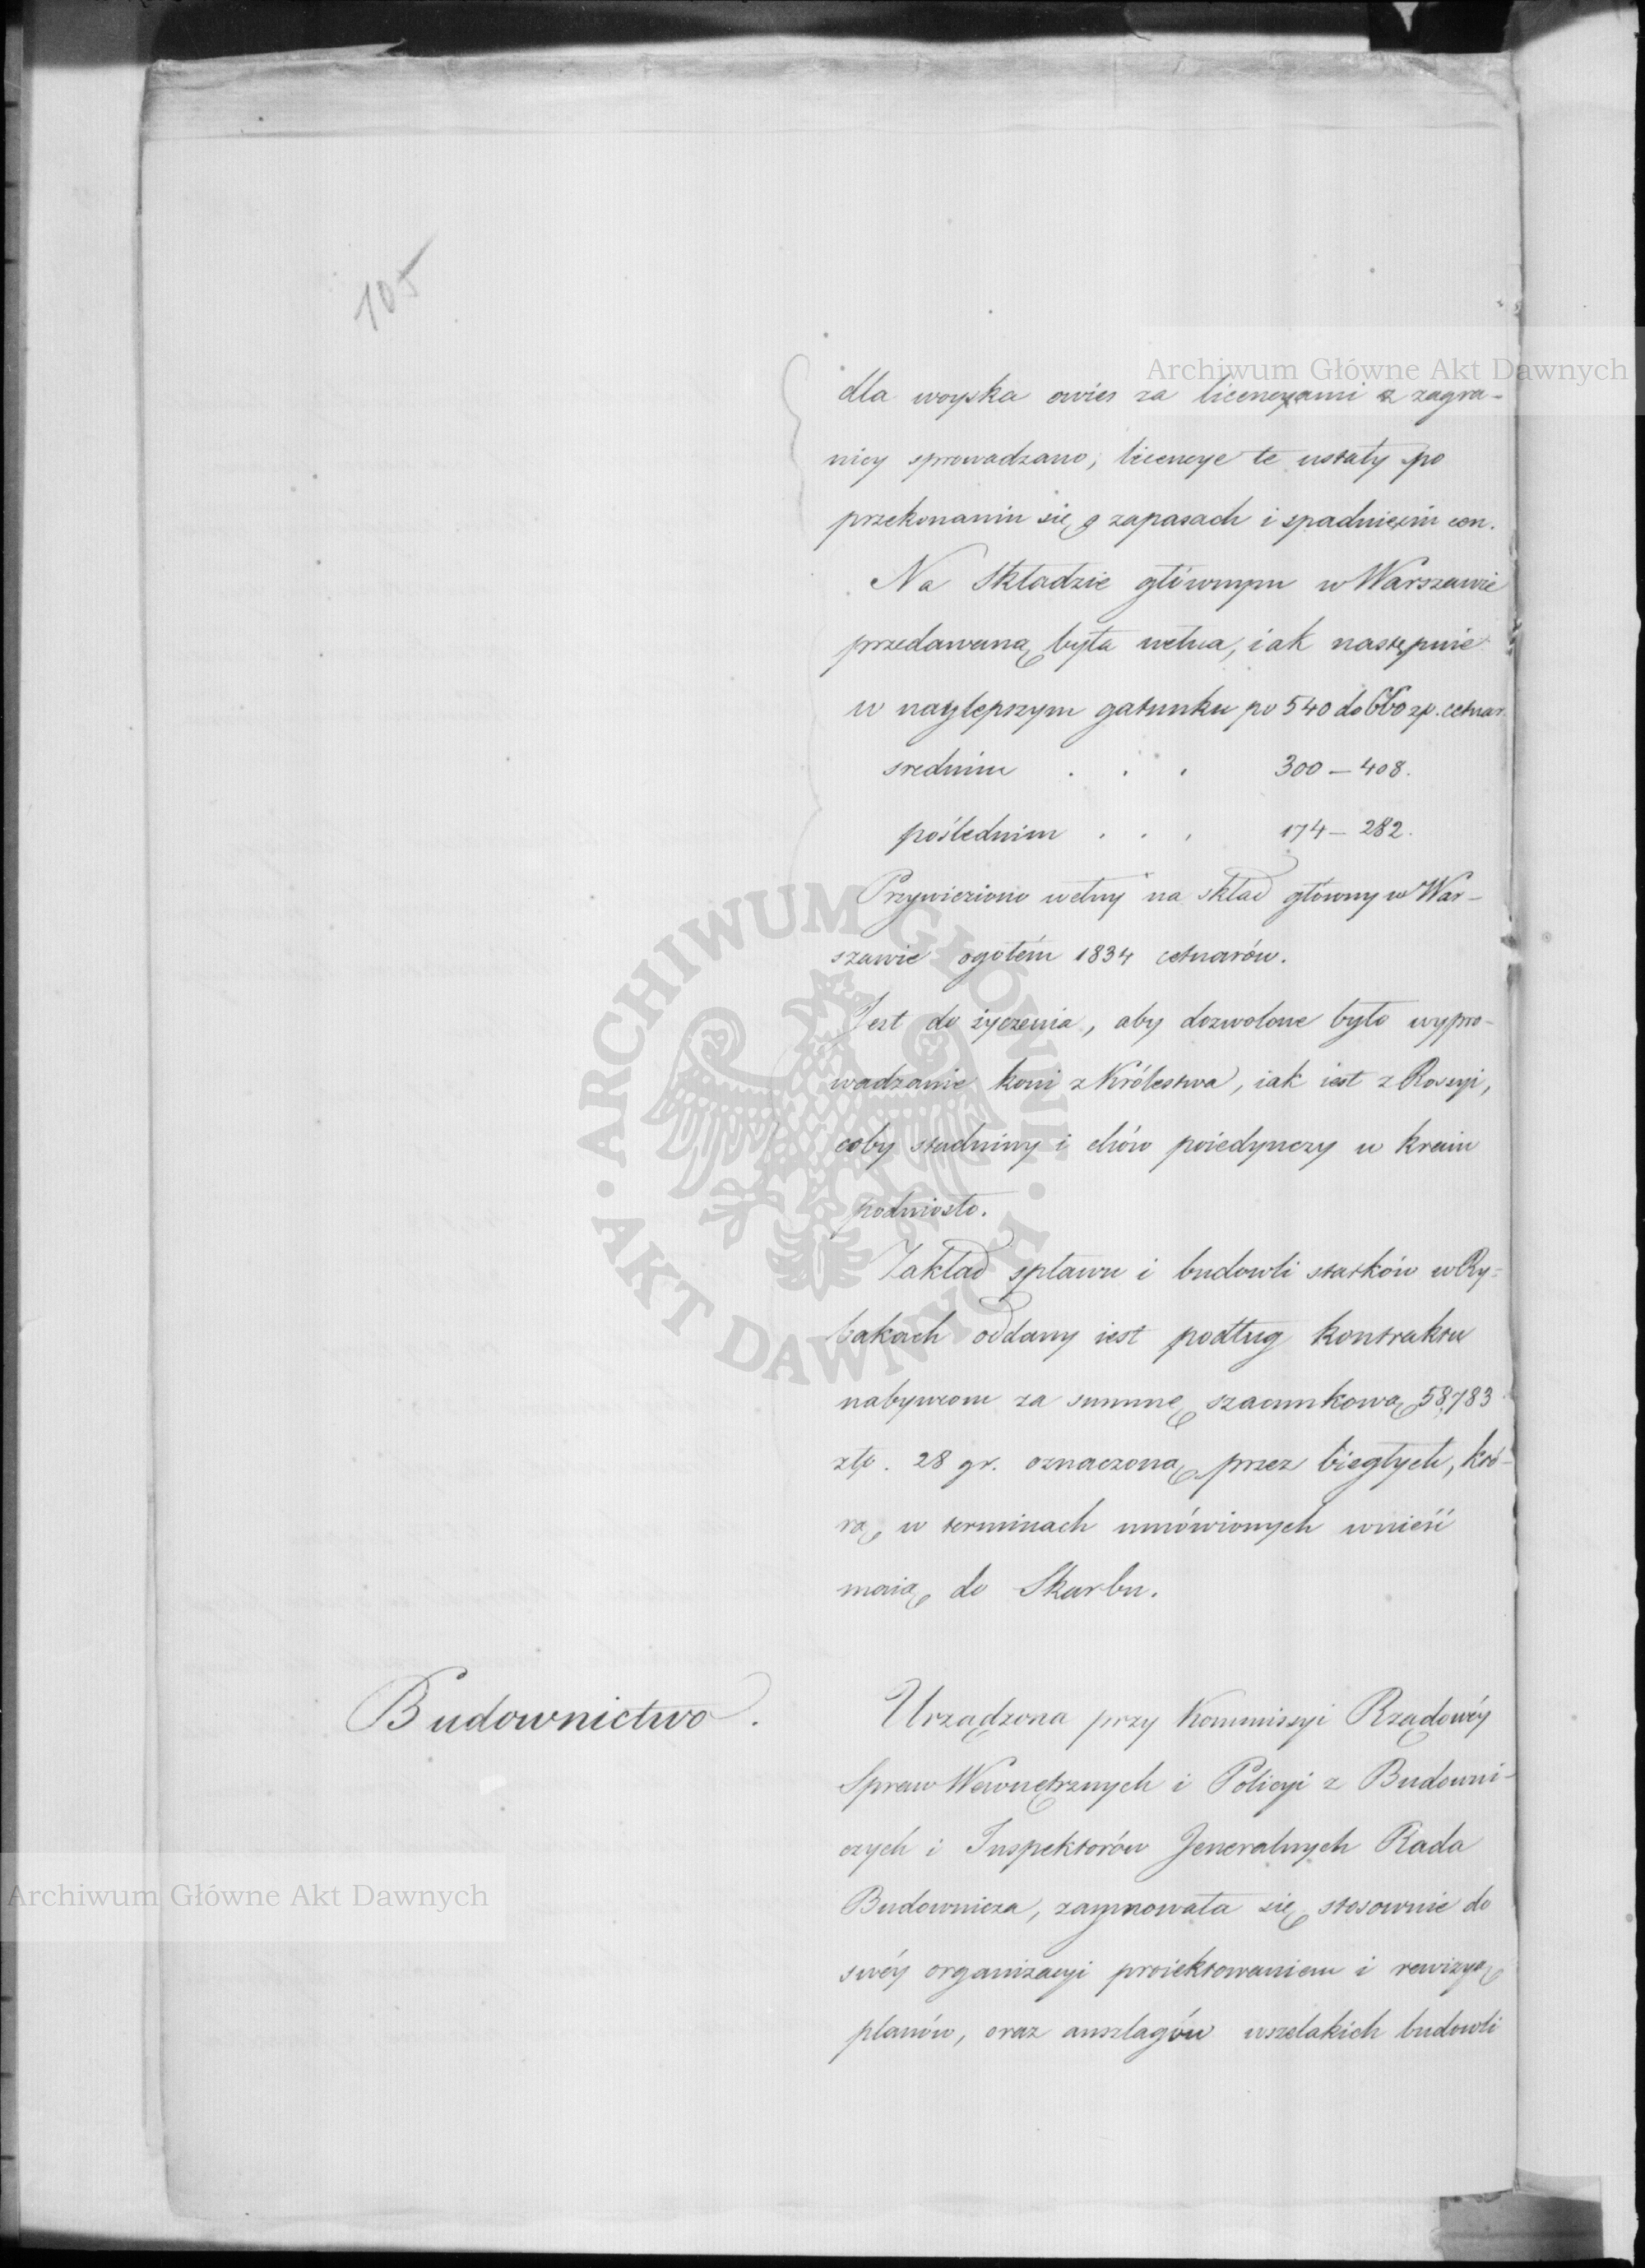 105
Archiwum Główne Akt Dawnych
dla woyska owies za licencyami z zagra-
nicy sprowadzano; licencye te ustały po
przekonaniu się o zapasach i spadnięciu cen.
Na Składzie głównym w Warszawie
przedawaną była wełna, iak następnie
w naylepszym gatunku po 540 do 660 zp. cetnar.
srednim . . . 300 – 408.
poślednim . . . 174 – 282.
Przywieziono wełny na skład główny w War-
szawie ogółem 1834 cetnarów.
Jest do życzenia, aby dozwolone było wypro-
wadzanie koni z Królestwa, iak iest z Rossyi,
coby stadniny i chów poiedynczy w kraiu
podniosło.
Zakład spławu i budowli statków w Ry-
bakach oddany iest podług kontraktu
nabywcom za summę szacunkową 58,783
złp. 28 gr. oznaczoną przez biegłych, któ-
rą w terminach umówionych wnieść
maią do Skarbu.
Budownictwo.
Urządzona przy Kommissyi Rządowéy
Spraw Wewnętrznych i Policyi z Budowni-
czych i Inspektorów Jeneralnych Rada
Budownicza, zaymowała się stosownie do
swéy organizacyi proiektowaniem i rewizyą
planów, oraz anszlagów wszelakich budowli
ARCHIWUM GŁÓWNE · AKT DAWNYCH ·
Archiwum Główne Akt Dawnych